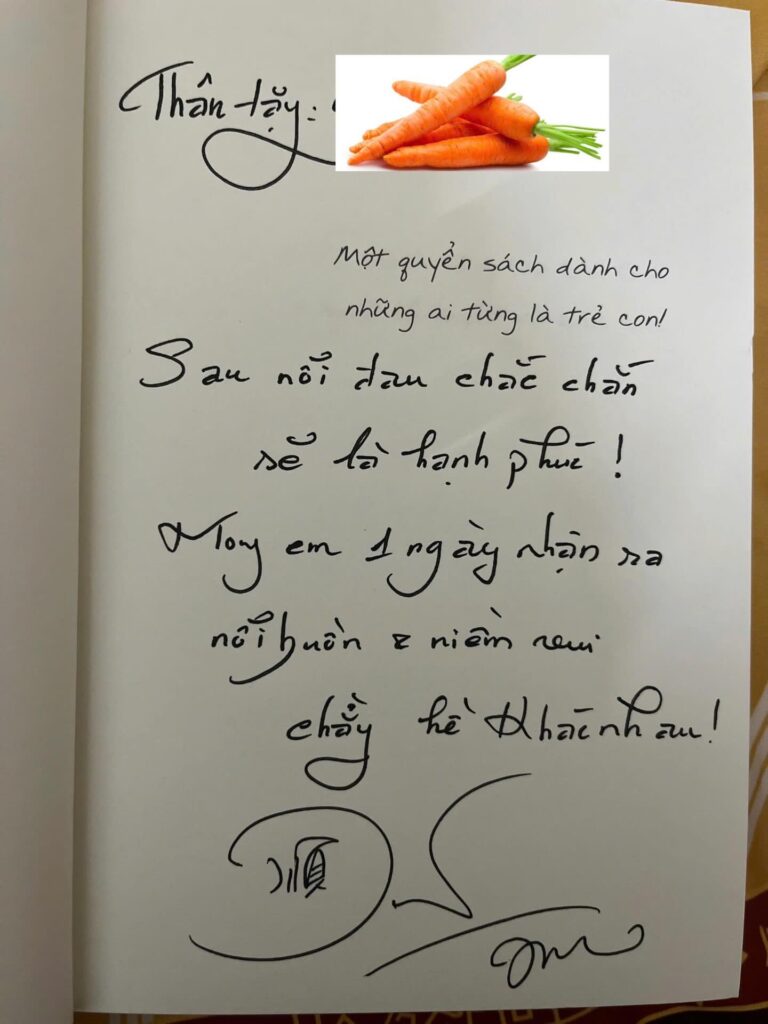 Thân tặng:
Một quyển sách dành cho
những ai từng là trẻ con!
Sau nỗi đau chắc chắn
sẽ là hạnh phúc!
Mong em 1 ngày nhận ra
nỗi buồn & niềm vui
chẳng hề khác nhau!
順